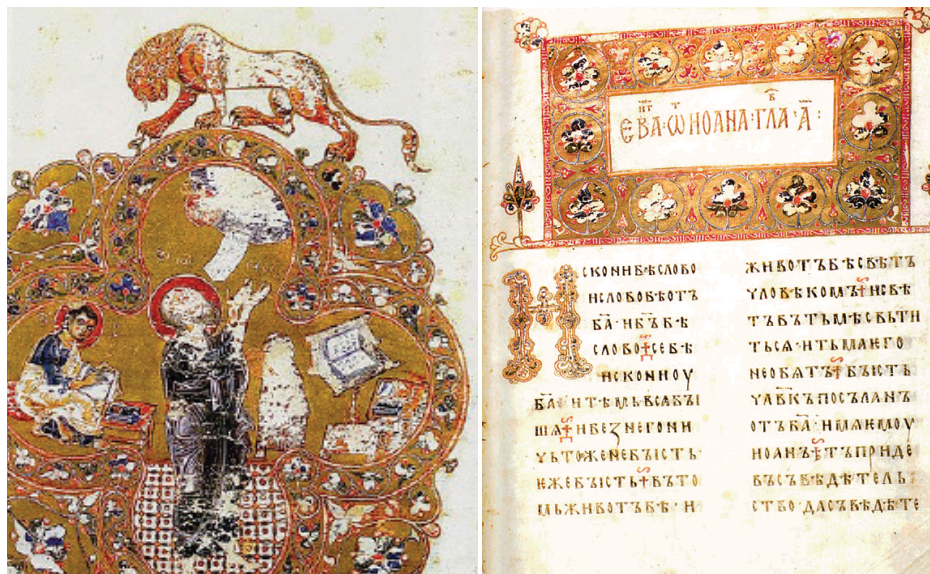 ЕВА·ѠИОАНА·ГЛА·А҃·
ИСКОНИБѢСЛОВО
ИСЛОВОБѢОТЪ
БА҃·ИБЪ҃БѢ
СЛОВО·СЕБѢ
ИСКОНИОУ
БА҃·ИТѢМЬВСѦБЪІ
ШѦ·ИБЕЗНЕГОНИ
ЧЬТОЖЕНЕБЪІСТЬ·
ЕЖЕБЪІСТЬ·ВЪТО
МЬЖИВОТЪБѢ·И
ЖИВОТЪБѢСВѢТЪ
ЧЛОВѢКОМЪ·ИСВѢ
ТЪВЪТЬМѢСВЬТИ
ТЬСѦ·ИТЬМАѤГО
НЕОБѦТЪ·БЪІСТЬ
ЧЛ҃ВКЪПОСЪЛАНЪ
ОТЪБА҃·ИМѦѤМОУ
ИОАНЪ·ТЪПРИДЕ
ВЪСЪВѢДѢТЕЛЬ
СТВО·ДАСЪВѢДѢТЕ